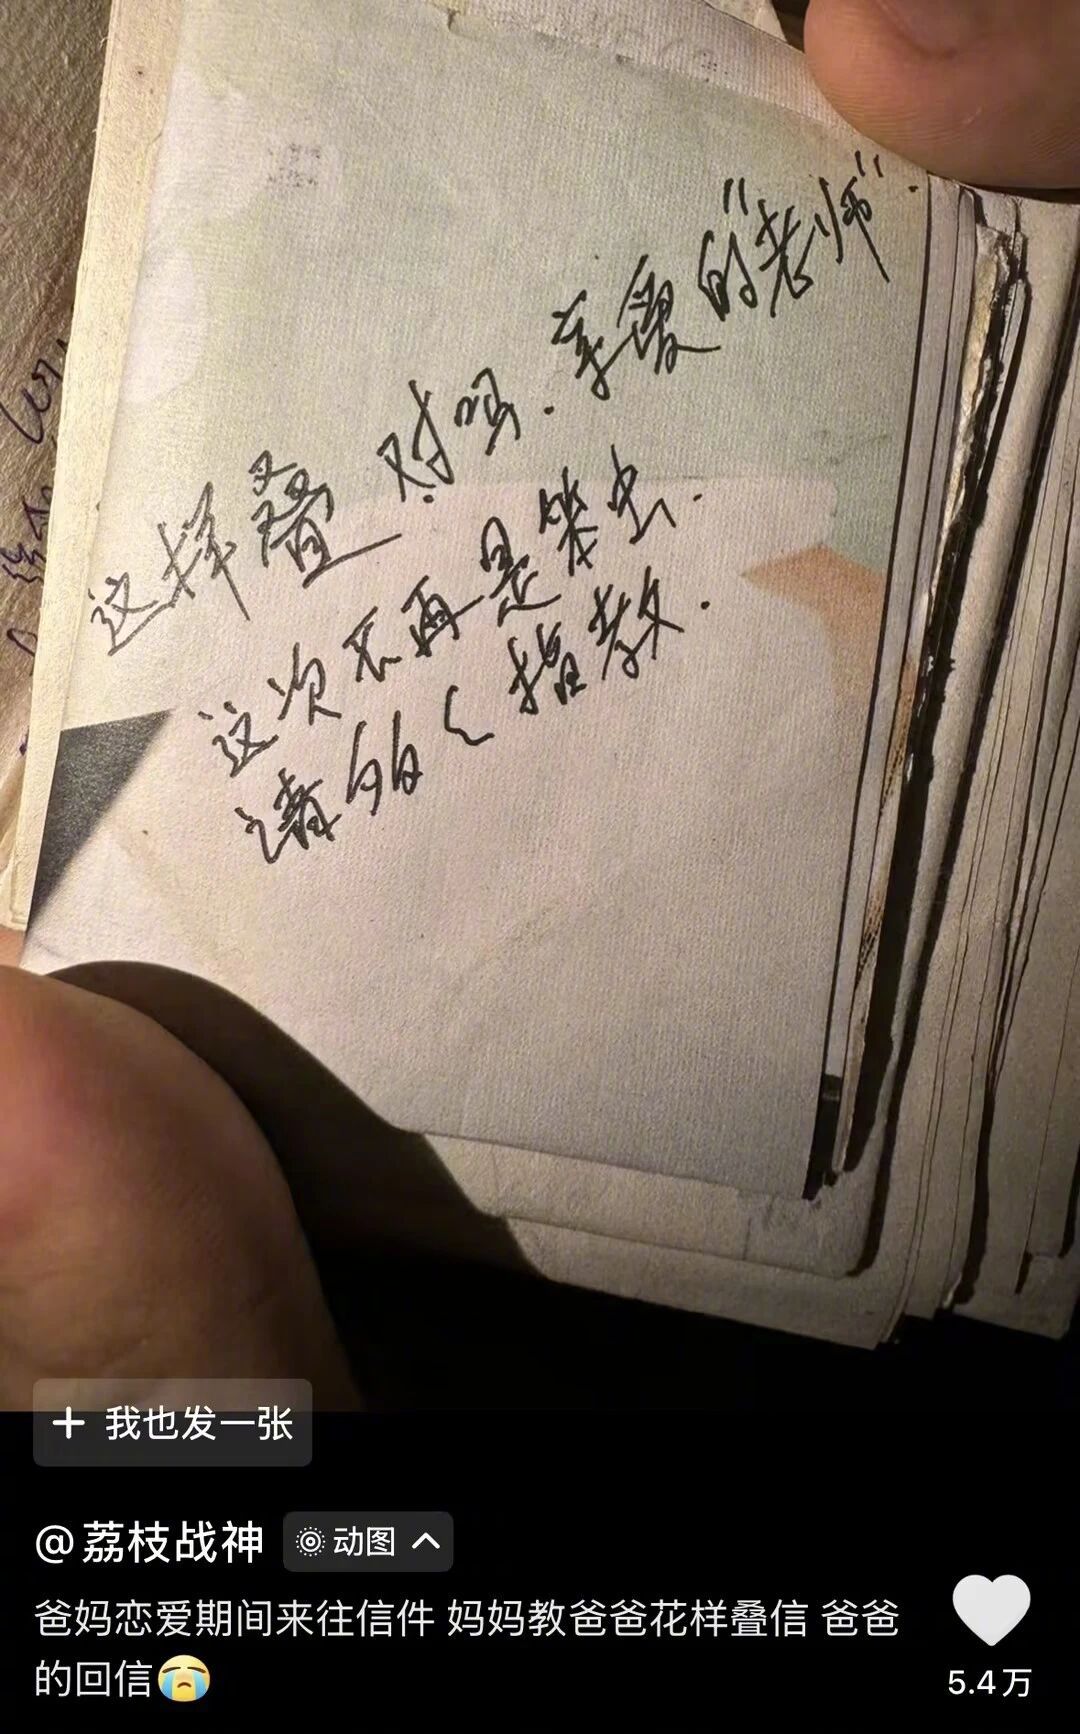 这样叠对吗.亲爱的"老师".
这次不再是笨虫.
请的指教.
我也发一张
@荔枝战神
动图
爸妈恋爱期间来往信件 妈妈教爸爸花样叠信 爸爸
的回信😭
5.4万